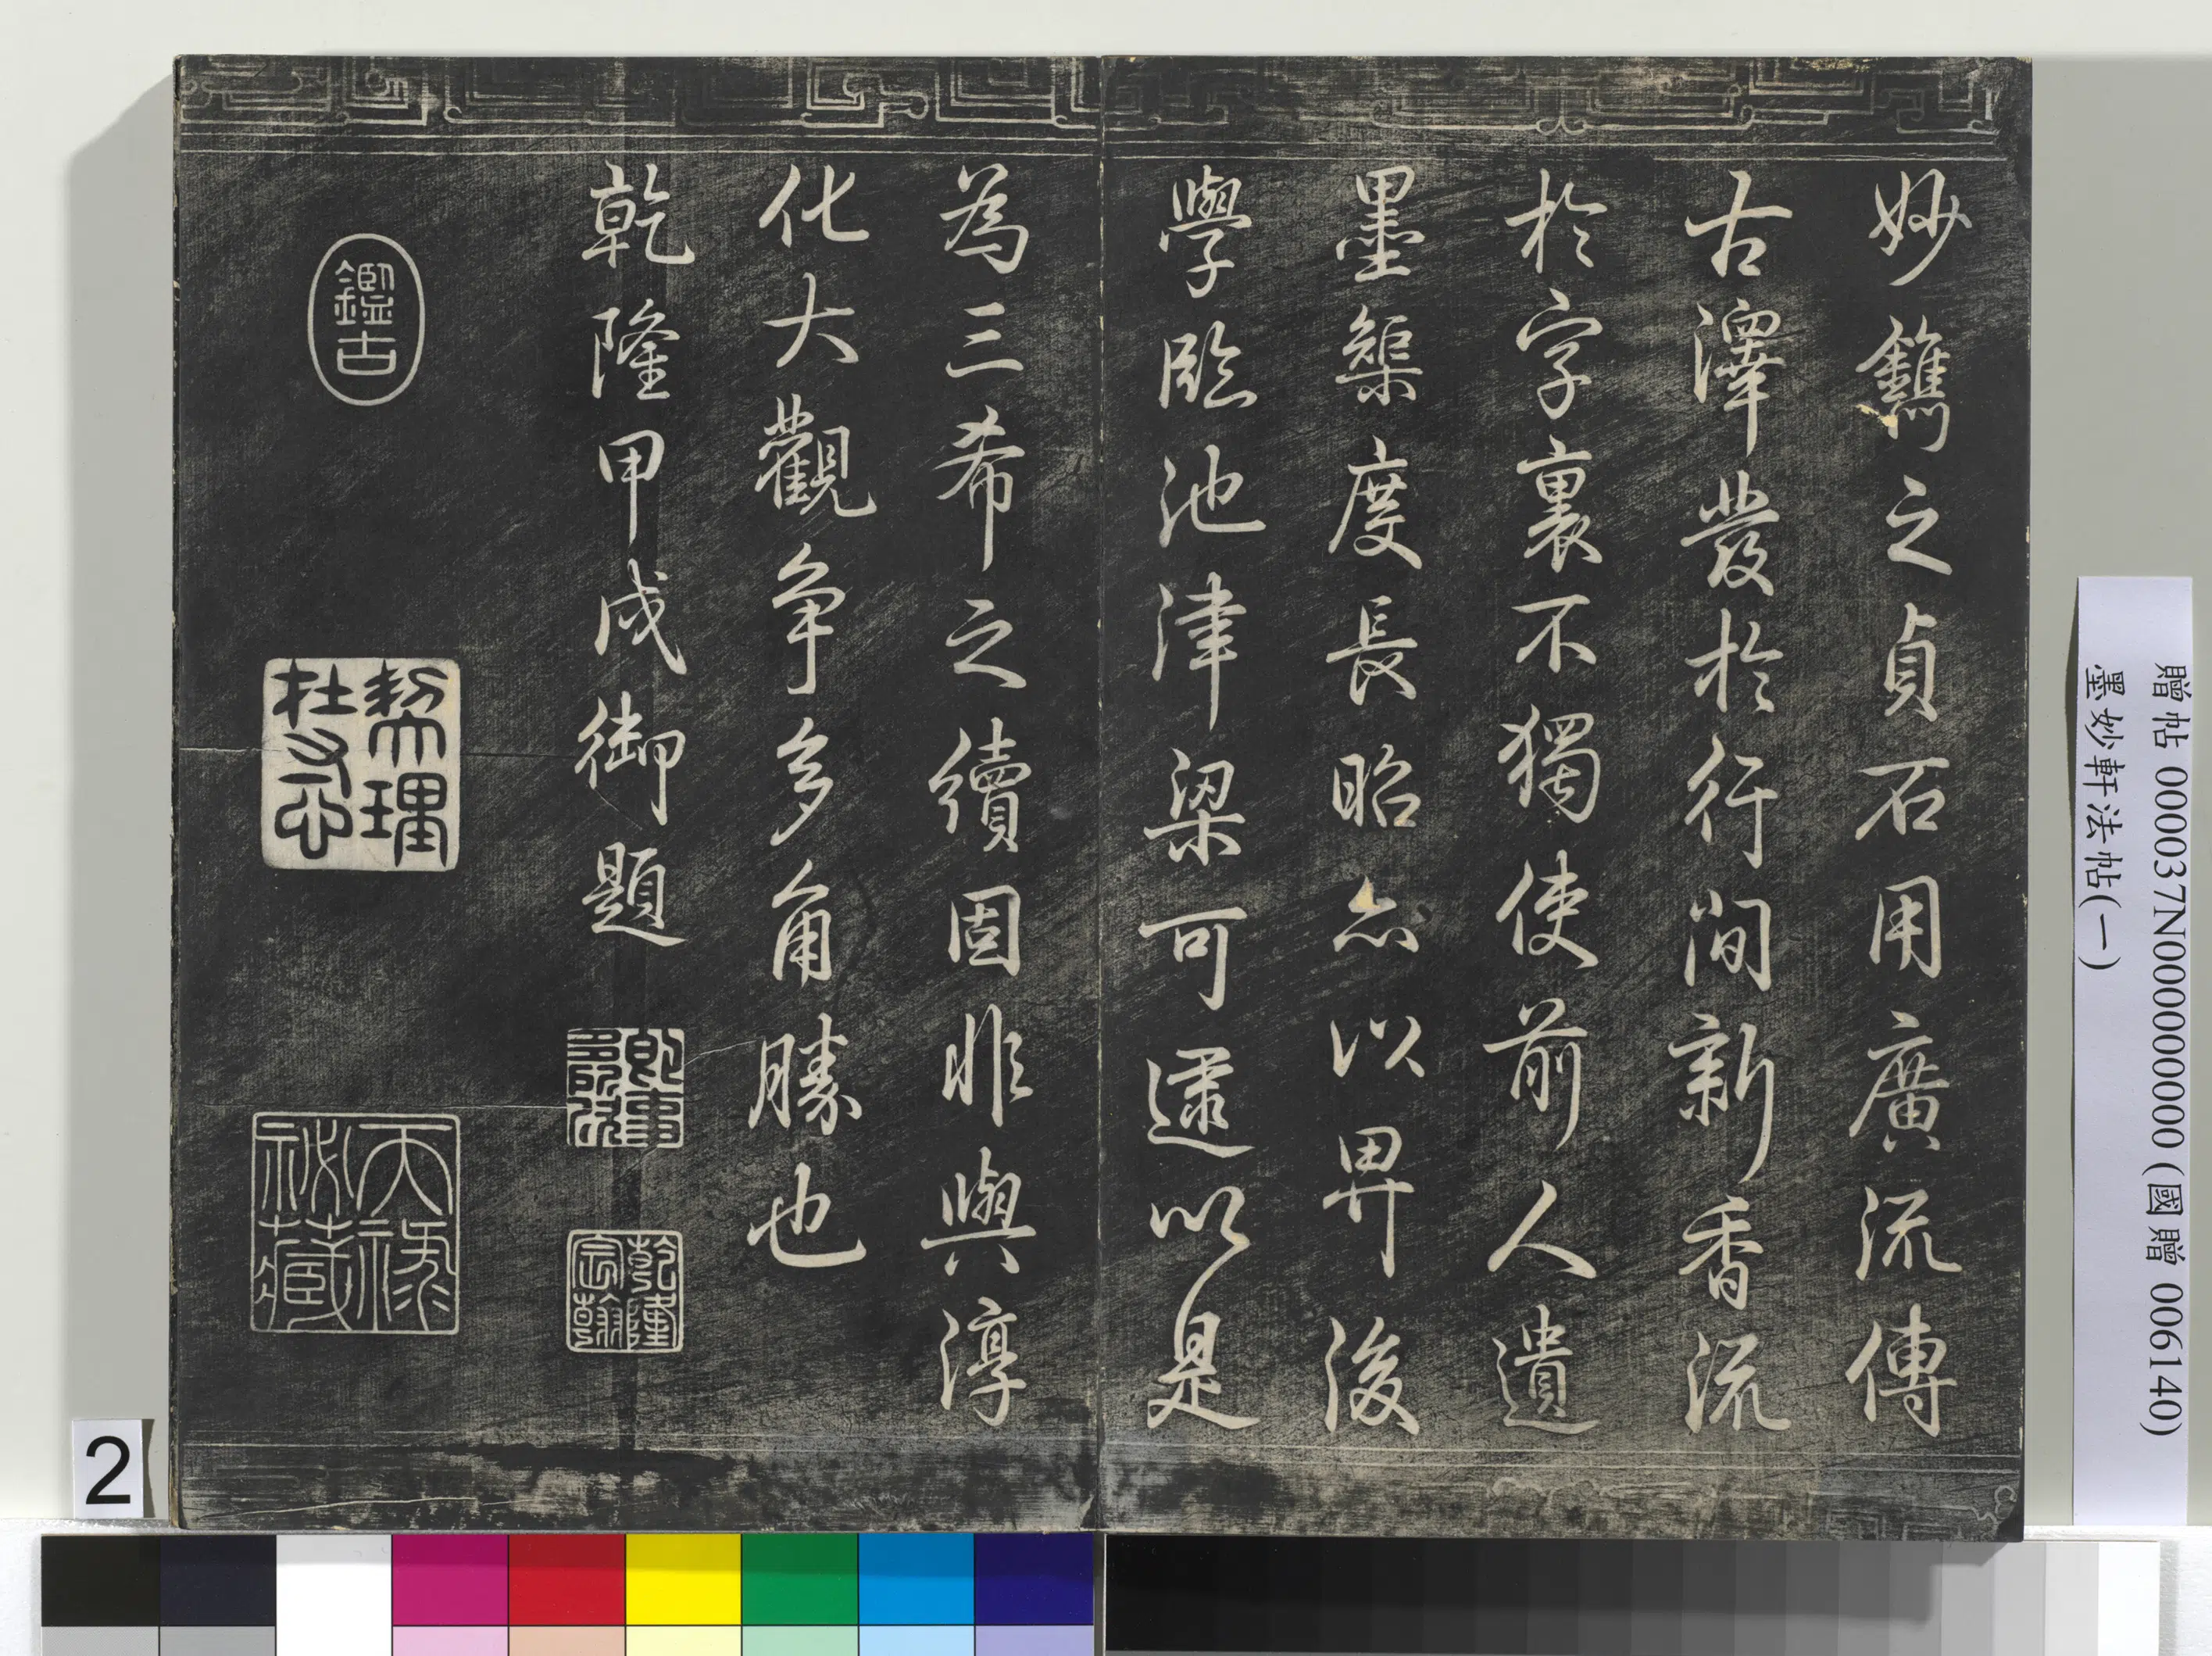 妙鐫之貞石用廣流傳
古澤發於行間新香流
於字裏不獨使前人遺
墨榘度長昭亦以畀後
學臨池津梁可逮以是
為三希之續固非與淳
化大觀争多角勝也
乾隆甲戌御題
乾隆
宸翰
鑑古
契理
天祿
贈帖 000037N000000000 (國贈 006140)
墨妙軒法帖(一)
2